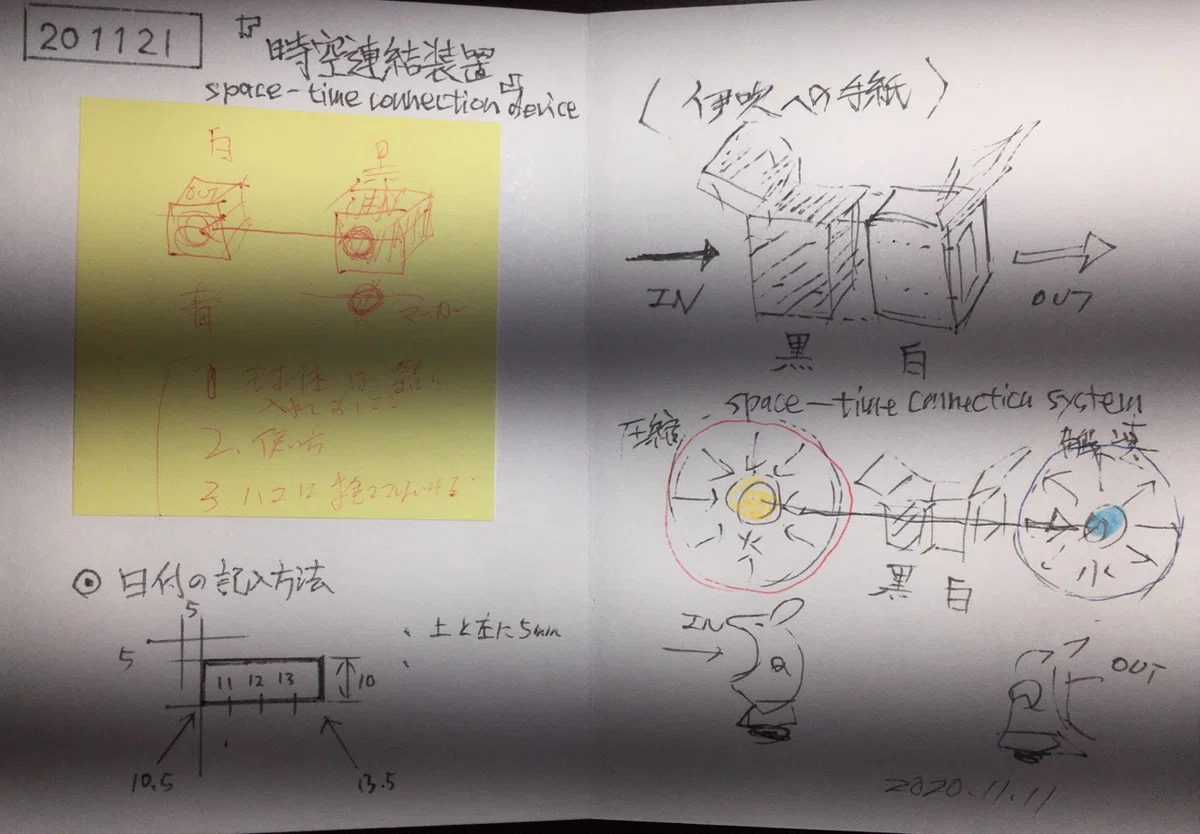 201121
『時空連結装置』
space-time connection device
白
黒
OUT
青
マーカー
1 球体は
入れておく
2. 使
3 ハコは捨て
◎ 日付の記入方法
5
5
・上と左に5mm
11 12 13
10
10.5
13.5
(伊吹への手紙)
IN
OUT
黒 白
space-time connection system
圧縮
解凍
火
水
黒 白
IN
OUT
2020.11.11